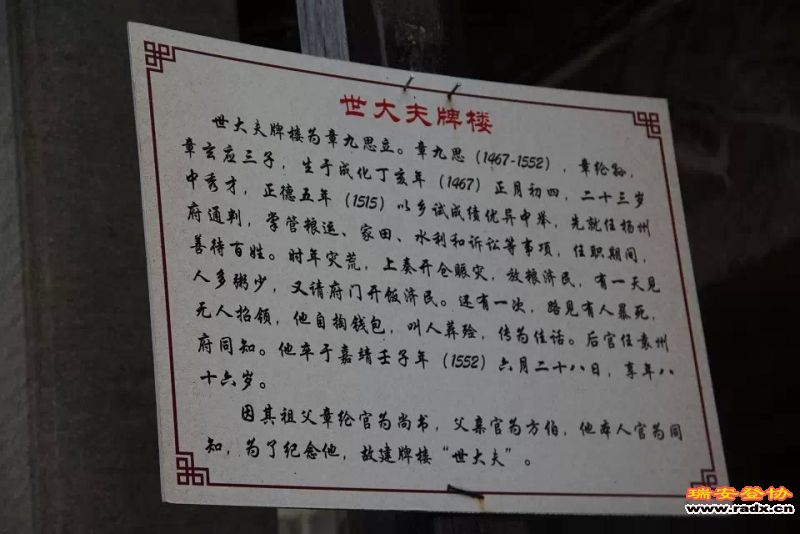 世大夫牌楼
世大夫牌楼为章九思立。章九思(1467-1552),章纶孙,
章玄应三子,生于成化丁亥年(1467)正月初四,二十三岁
中秀才,正德五年(1515)以乡试成绩优异中举,先就任扬州
府通判,掌管粮运、家田、水利和诉讼等事项,任职期间,
善待百姓。时年灾荒,上奏开仓赈灾,放粮济民,有一天见
人多粥少,又请府门开饭济民。还有一次,路见有人暴死,
无人招领,他自掏钱包,叫人葬殓,传为佳话。后官任袁州
府同知。他卒于嘉靖壬子年(1552)六月二十八日,享年八
十六岁。
因其祖父章纶官为尚书,父亲官为方伯,他本人官为同
知,为了纪念他,故建牌楼“世大夫”。
瑞安登协
www.radx.cn